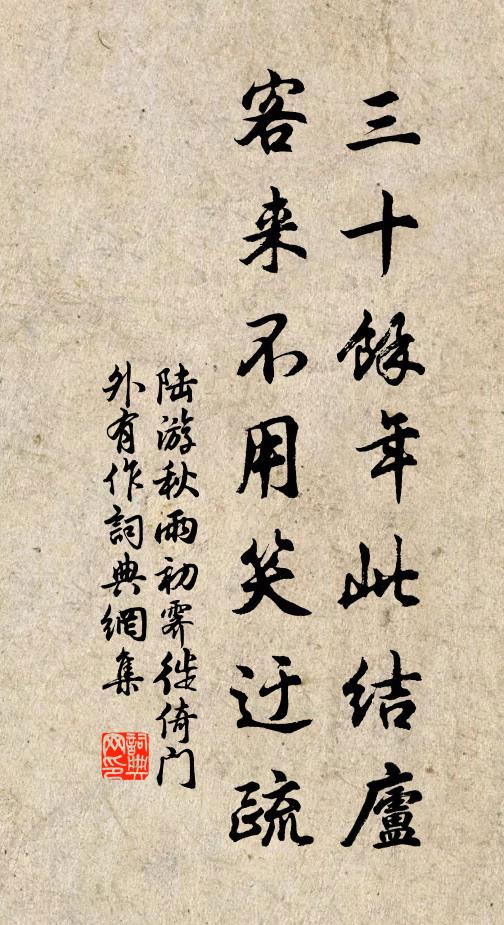 三十餘年此結廬
客来不用笑迂疏
陆游秋雨初霁徙倚门
外有作詞典網集
詞典網印